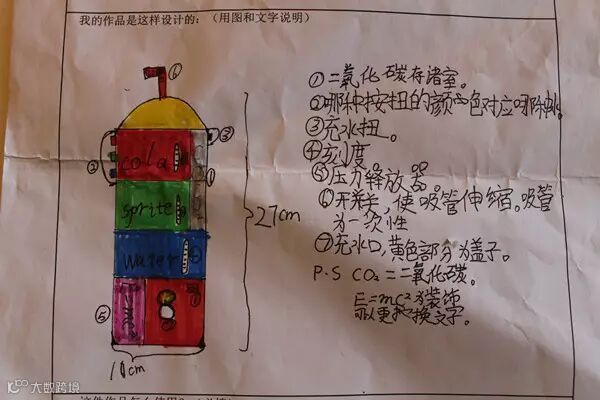 我的作品是这样设计的:(用图和文字说明)
⑥
③
②
cola
sprite
water
27cm
⑤
E=mc²
10cm
①二氧化碳存储室。
②哪种按扭的颜色对应哪种
③充冰扭。
④刻度。
⑤压力释放器。
⑥开关,使吸管伸缩。吸管
为一次性
⑦充水口,黄色部分为盖子。
P.S CO₂=二氧化碳。
E=mc²为装饰
可以更换文字。
大数跨境